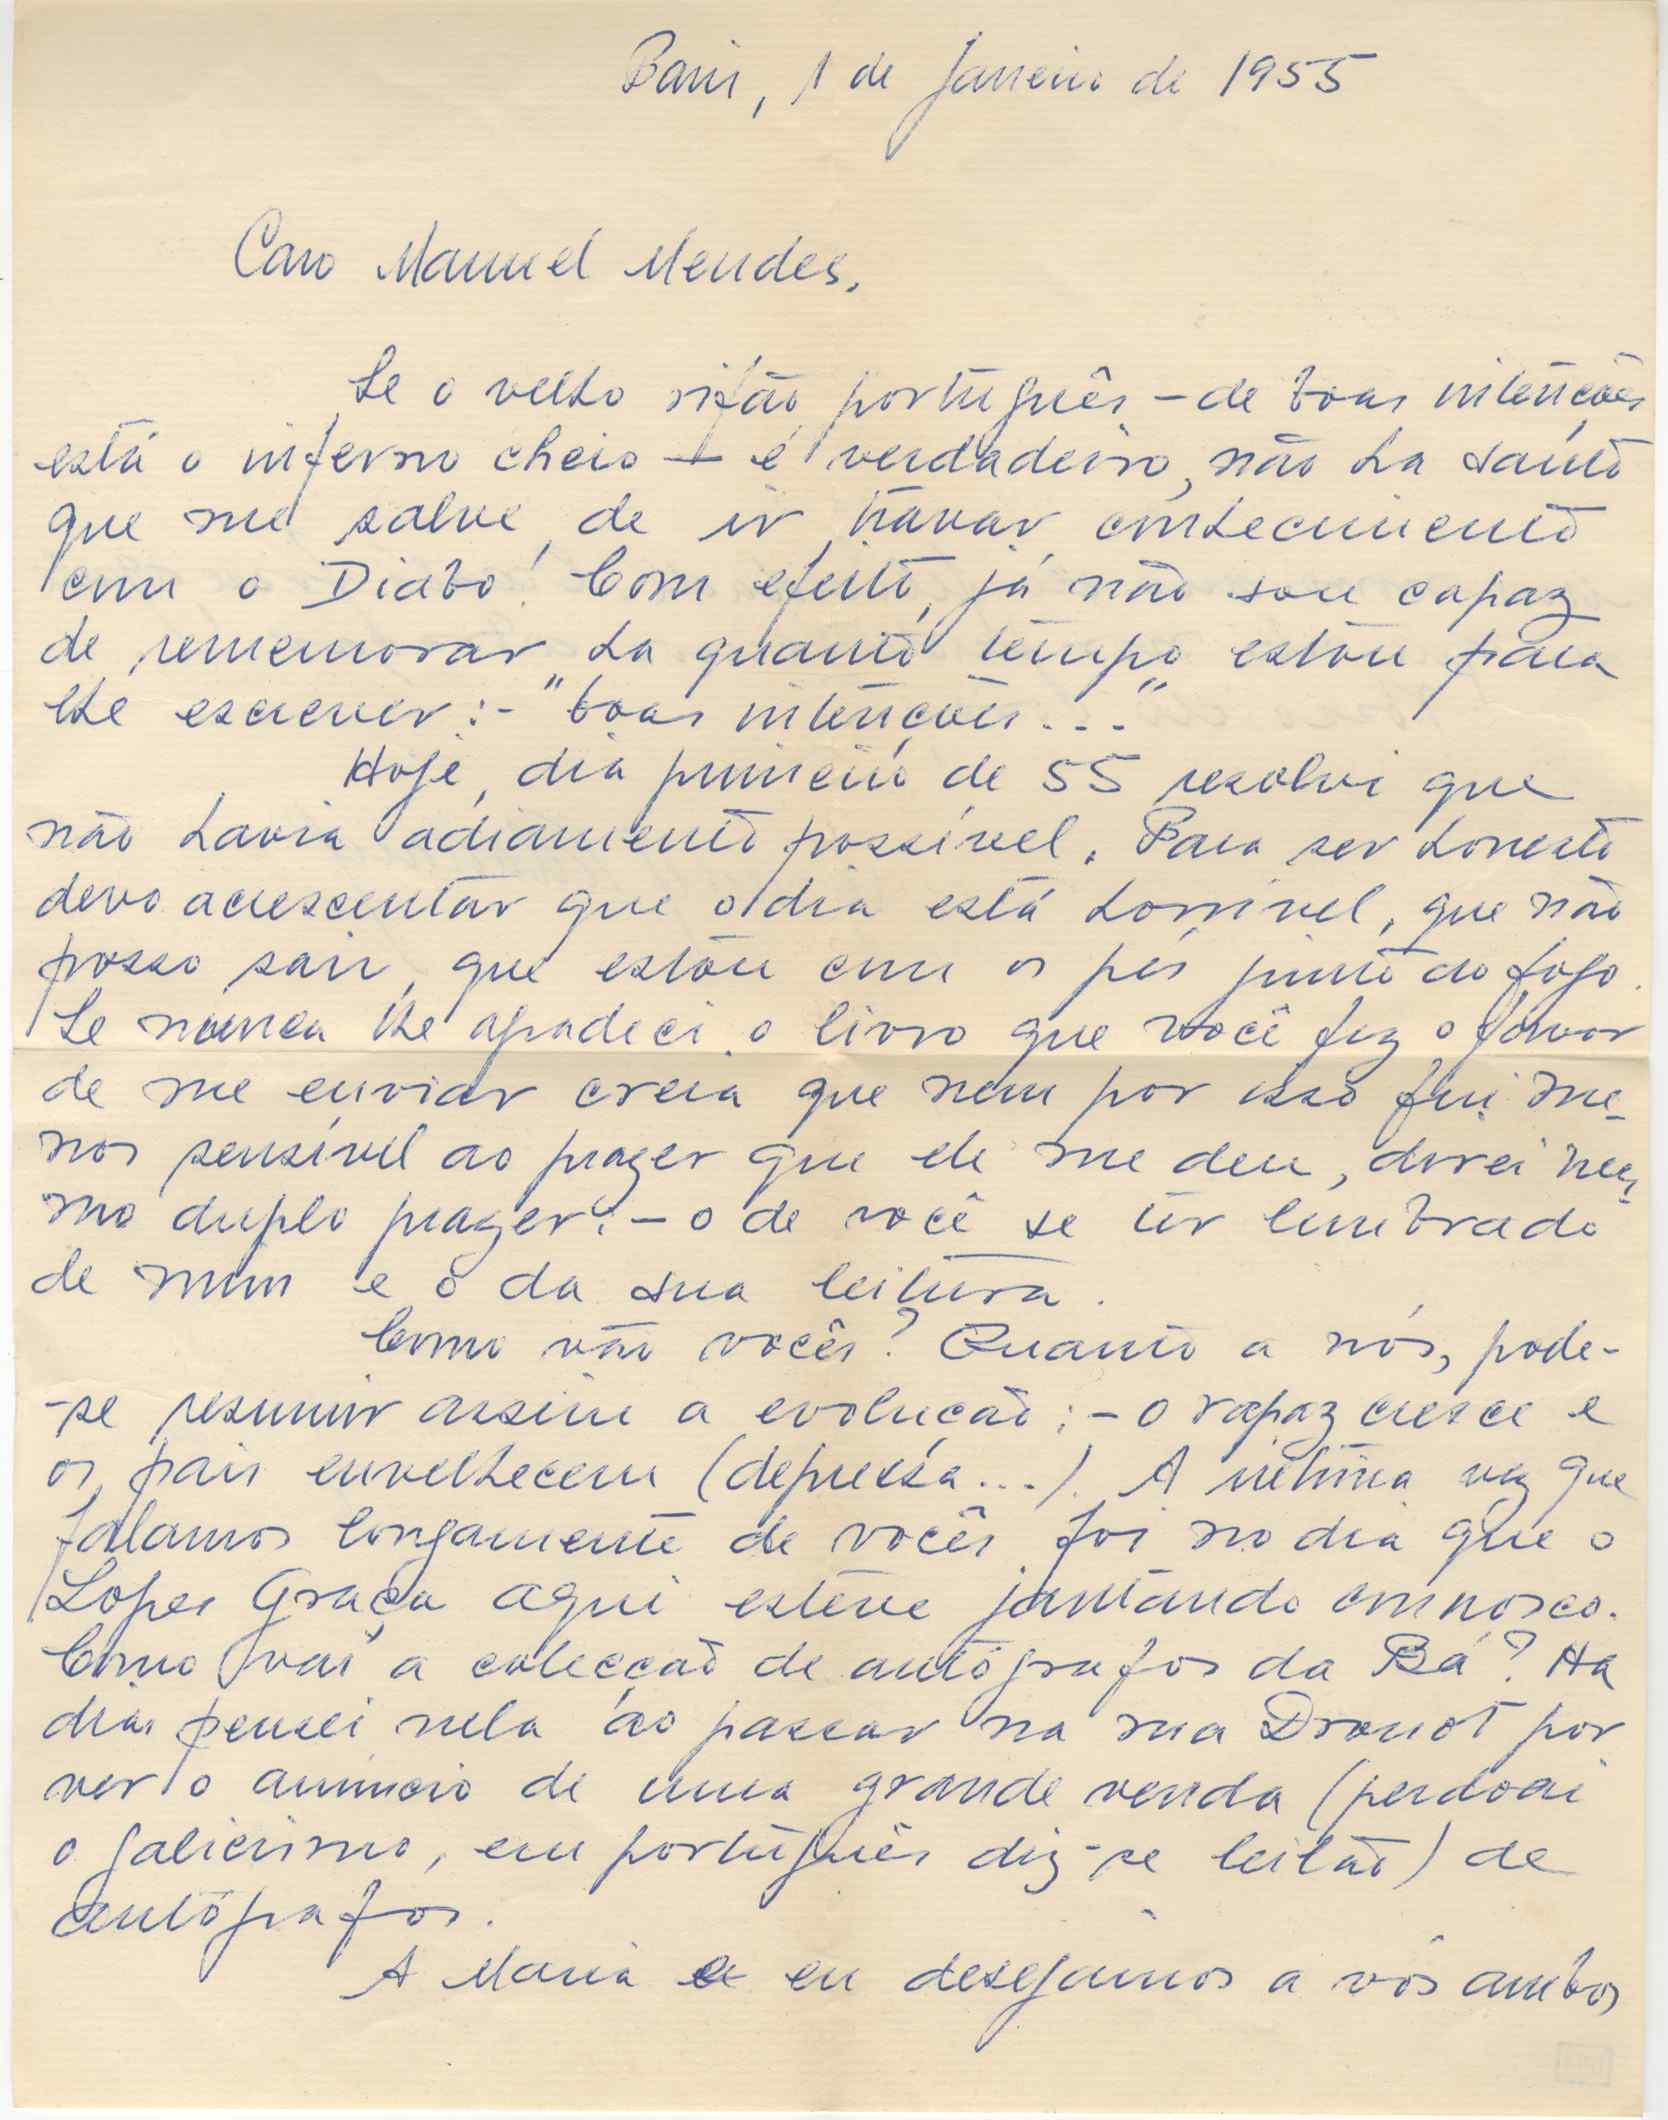 Paris, 1 de Janeiro de 1955
Caro Manuel Mendes,
Se o velho rifão português – de boas intenções
está o inferno cheio – é verdadeiro, não ha santo
que me salve de ir travar conhecimento
com o Diabo! Com efeito, já não sou capaz
de rememorar ha quanto tempo estou para
lhe escrever :- "boas intenções..."
Hoje, dia primeiro de 55 resolvi que
não havia adiamento possível. Para ser honesto
devo acrescentar que o dia está horrivel, que não
posso sair, que estou com os pés junto do fogo.
Se nunca lhe agradeci o livro que você fez o favor
de me enviar creia que nem por isso fui me-
nos sensível ao prazer que ele me deu, direi mes-
mo duplo prazer :- o de você se ter lembrado
de mim e o da sua leitura.
Como vão vocês? Quanto a nós, pode-
-se resumir assim a evolução :- o rapaz cresce e
os pais envelhecem (depressa...). A ultima vez que
falamos longamente de vocês foi no dia que o
Lopes Graça aqui esteve jantando comnosco.
Como vai a colecção de autógrafos da Bá? Ha
dias pensei nela ao passar na rua Drouot por
ver o anúncio de uma grande venda (perdoai
o galicismo, em português diz-se leilão) de
autógrafos.
A Maria e eu desejamos a vós ambos